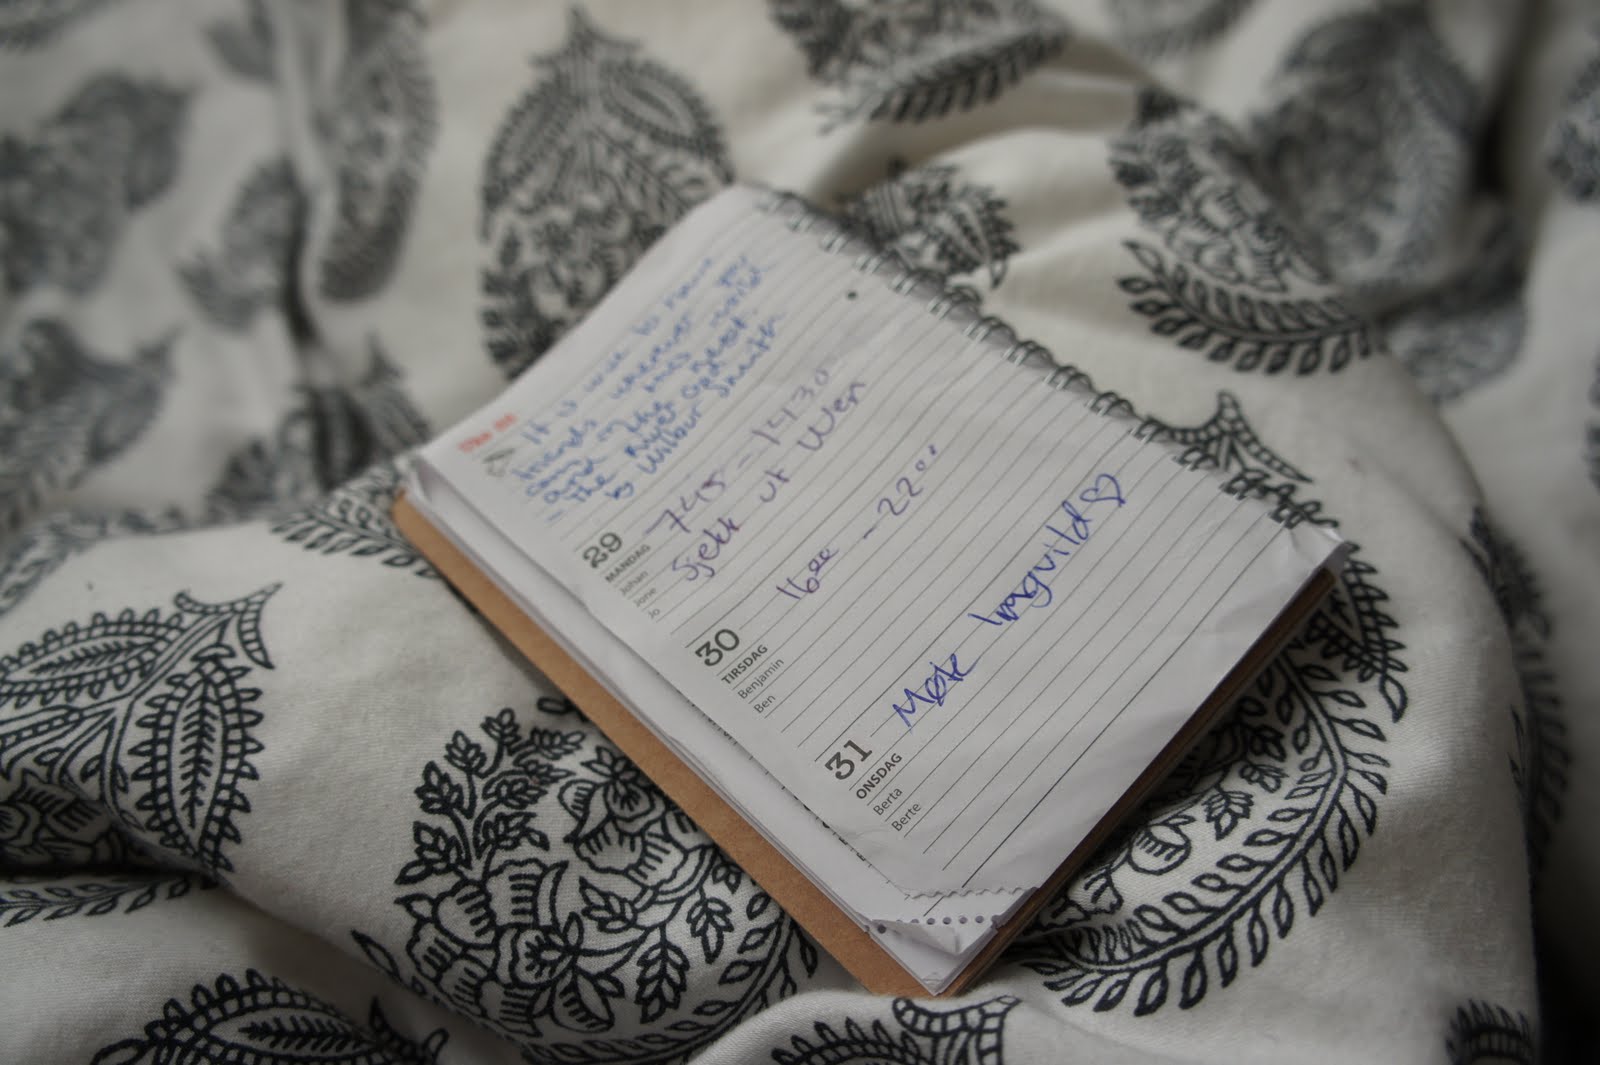 It is wise to have
friends wherever you
come in the
and
- The River
by Wilbur Smith
29
MANDAG
Johan
Jone
Jo
745 - 1430
Sjekk ut
30
TIRSDAG
Benjamin
Ben
1600 - 2200
31
ONSDAG
Berta
Berte
Møte Imgvild♡